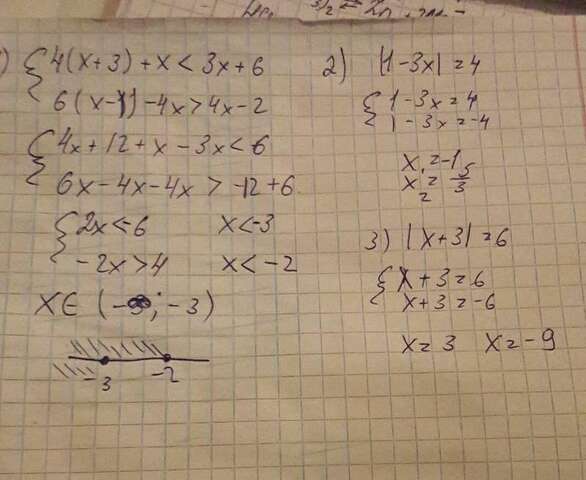 ) { 4(x+3)+x<3x+6
6(x-1)-4x>4x-2
{ 4x+12+x-3x<6
6x-4x-4x>-12+6
{ 2x<-6 x<-3
-2x>4 x<-2
x∈(-∞;-3)
-3 -2
2) |1-3x|=4
{ 1-3x=4
1-3x=-4
x₁=-1
x₂=5/3
3) |x+3|=6
{ x+3=6
x+3=-6
x=3 x=-9